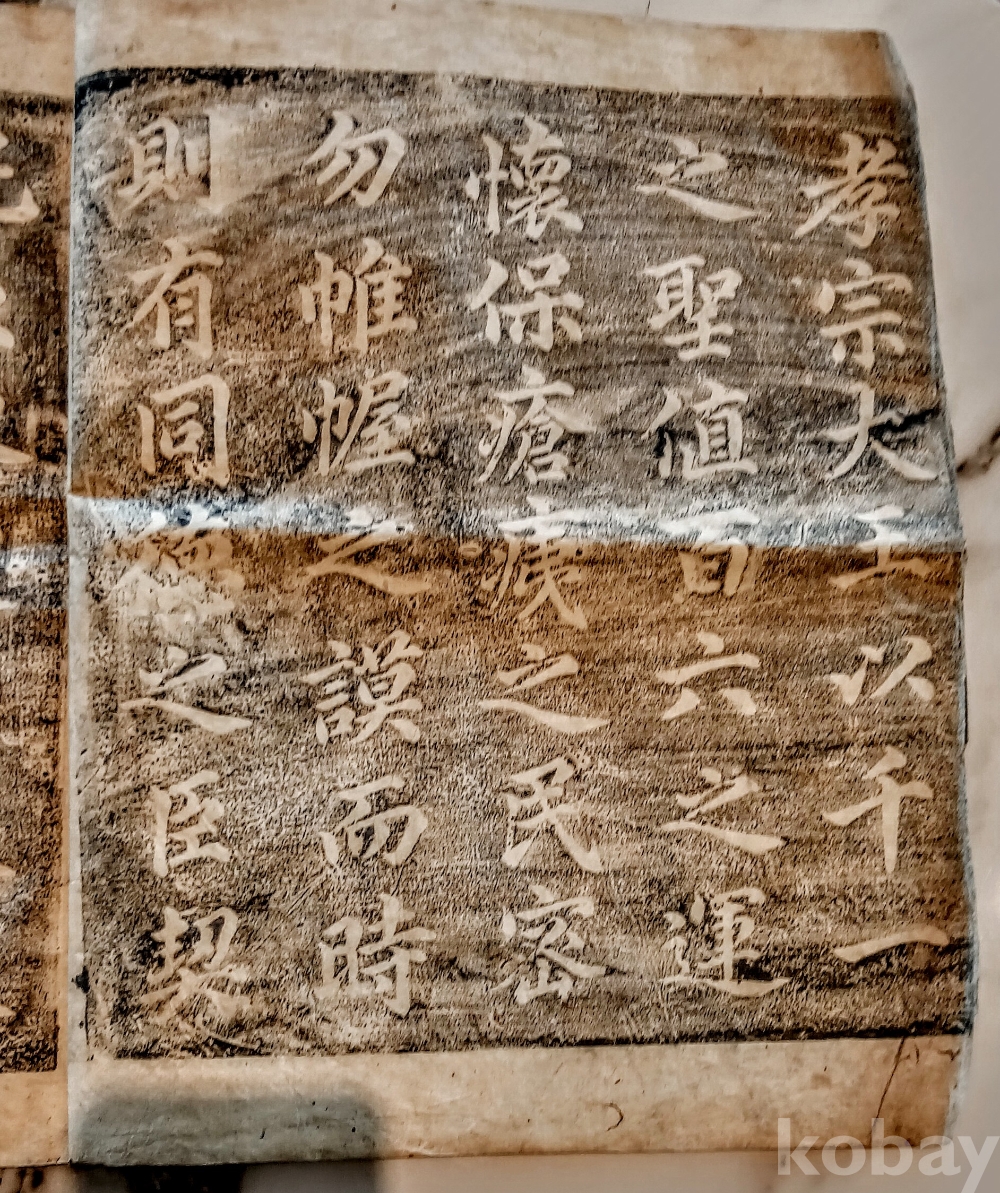 孝宗大王以千一
之聖值百六之運
懷保瘡痍之民密
勿帷幄之謨而時
則有同德之臣契
kobay